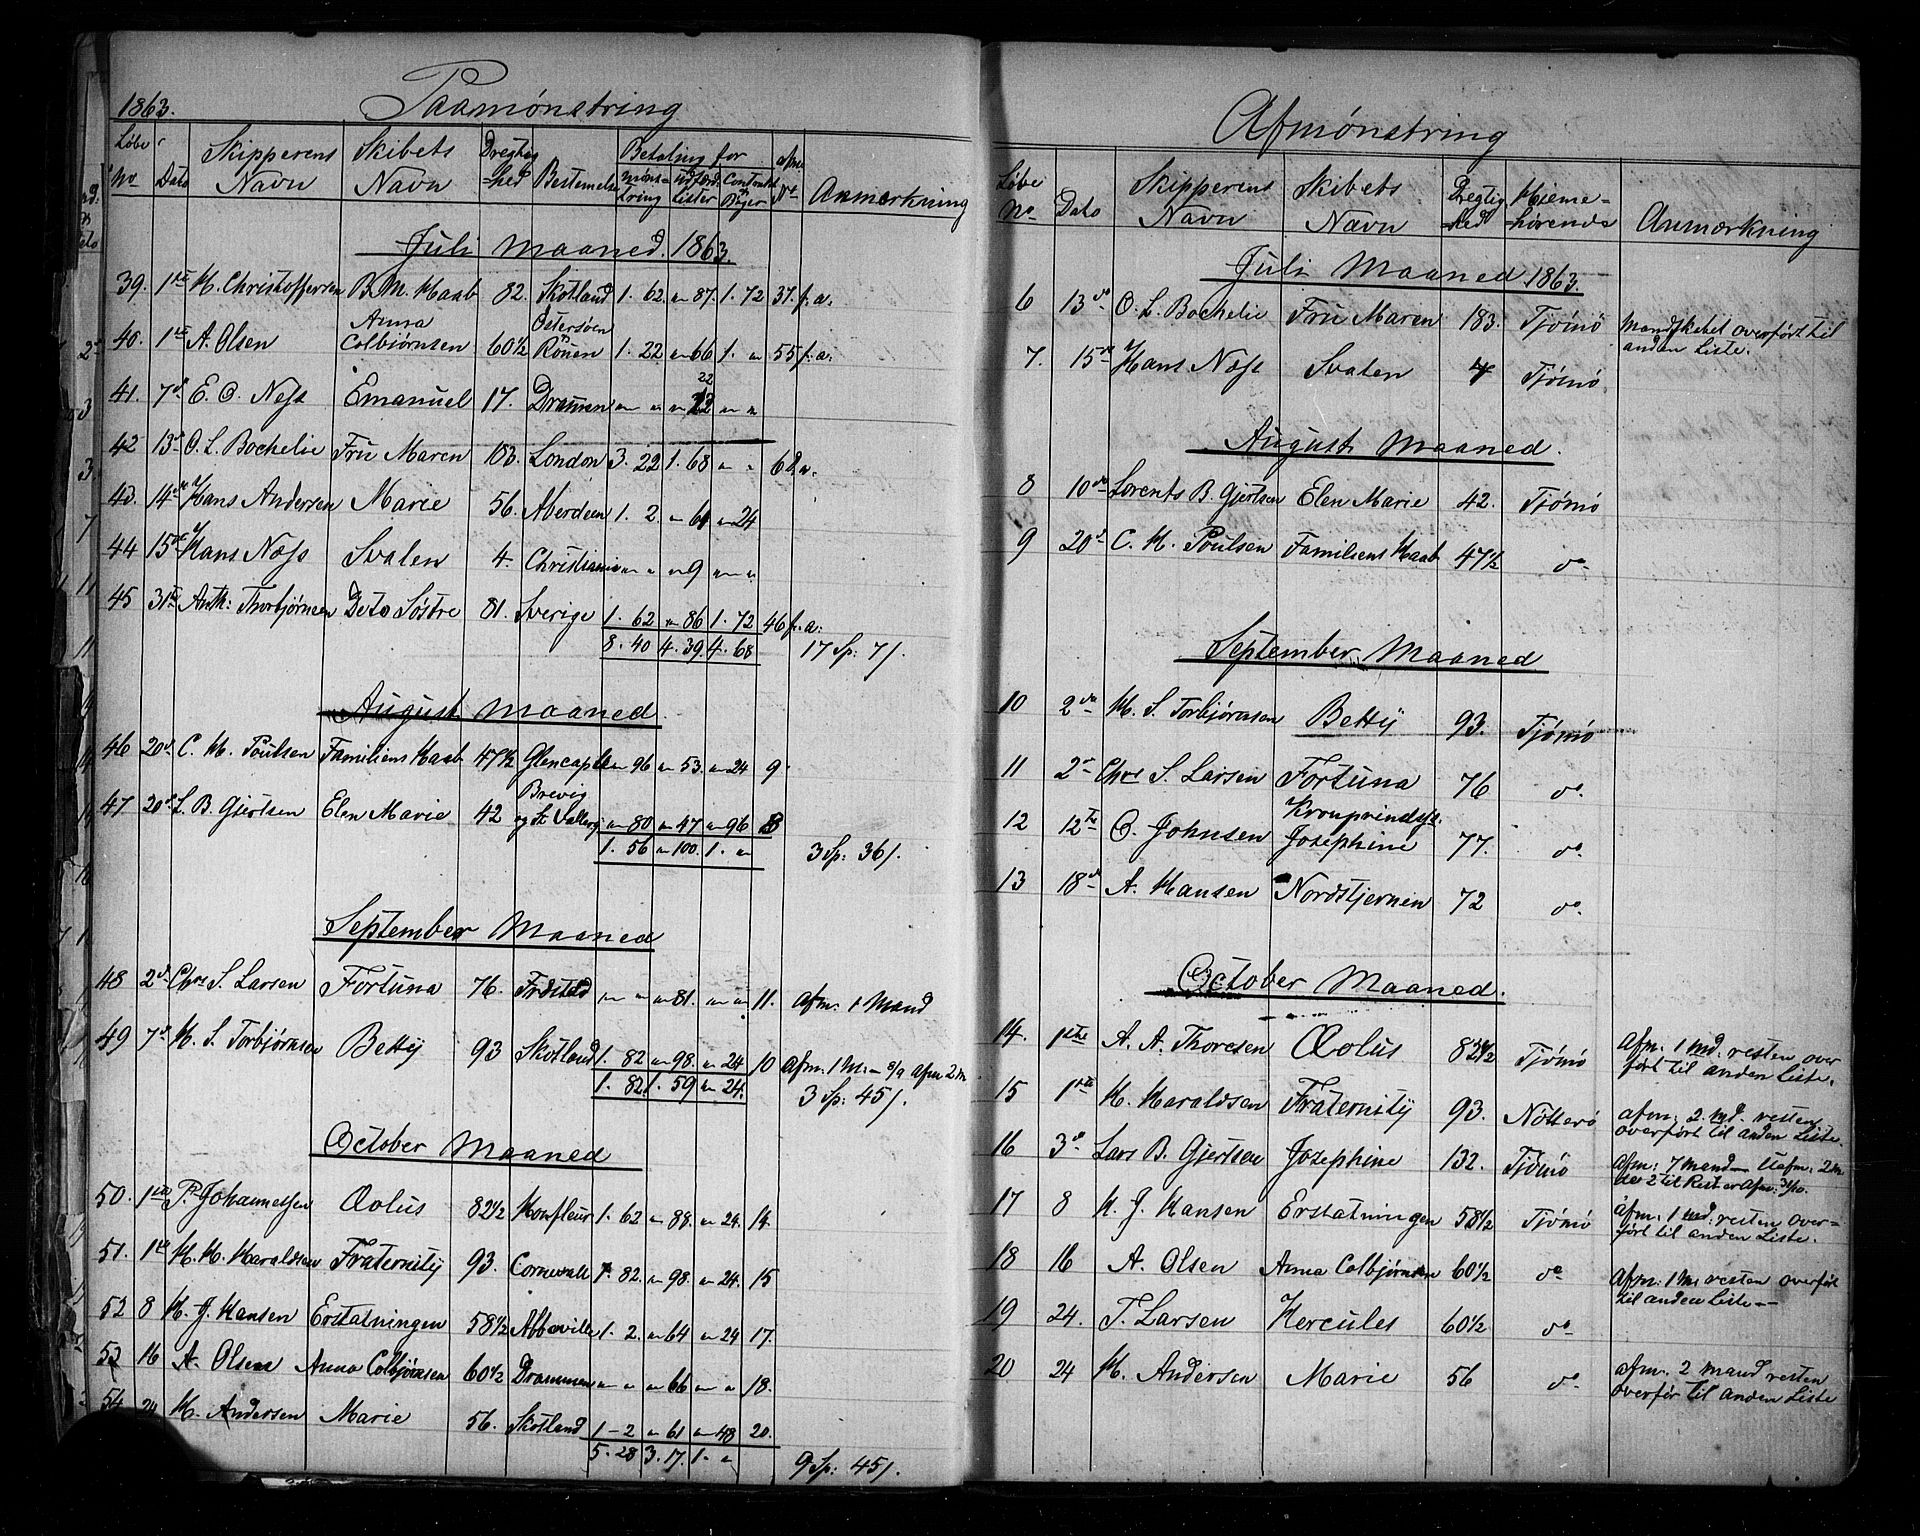 1863. Paamönstring
Löbe No | Dato | Skipperens Navn | Skibets Navn | Drægtighed | Bestemelse | Betaling for: mönstring | Udfærd. Lister | Contrakt Böger | afm. No | Anmærkning
Juli Maaned. 1863.
39. 1ste H. Christoffersen B. M. Haab 82. Skotland 1. 62. " 87. 1. 72 37. f. a.
40. 1ste A. Olsen Anna Colbjörnsen 60 1/2 Östersöen Rouen 1. 22 " 66 1. " 55 f. a.
41. 7de E. O. Ness Emanuel 17. Drammen " " " 22 " "
42 13de O. L. Bochelie Fru Maren 183. London 3. 22 1. 68 " " 6 f. a.
43. 14de Hans Andersen Marie 56. Aberdeen 1. 2. " 61 " 24
44 15de Hans Næss Svalen 4. Christiania " " " 9 " "
45 31te Anth: Thorbjörnsen De to Söstre 81. Sverige 1. 62 " 86 1. 72 46 f. a:
8. 40 4. 39. 4. 68 17 Sp: 7/.
August Maaned
46 20de C. H. Poulsen Familiens Haab 47 1/2 Glencaple " 96 " 53. " 24 9
47 20de L. B. Gjertsen Elen Marie 42 Brevig og St Vallery " 80 " 47 " 96 8
1. 56 " 100. 1. " 3 Sp: 36/.
September Maaned
48 2de Chrs S. Larsen Fortuna 76. " " " 81. " " 11. afm. 1 Mand
49 7de H. S. Torbjörnsen Betty 93 Skotland 1. 82 " 98. " 24 10 afm. 1 M. – afm 2 M
1. 82. 1. 59 " 24. 3 Sp: 45/.
October Maaned
50. 1ste P. Johannessen Æolus 82 1/2 Honfleur 1. 62 " 88. " 24. 14.
51. 1ste H. H. Haraldsen Fraternity 93. Cornevall 1. 82. " 98. " 24. 15
52 8 H. J. Hansen Erstatningen 58 1/2 Abbeville 1. 2. " 64 " 24 17.
53 16 A. Olsen Anna Colbjörnsen 60 1/2 Drammen " " " 66 " " 18.
54 24 H. Andersen Marie 56. Skotland 1 – 2 " 61 " 48 20.
5. 28 3. 17. 1. " 9 Sp: 45/.
Afmönstring
Löbe No | Dato | Skipperens Navn | Skibets Navn | Drægtighed | Hjemehörende | Anmærkning
Juli Maaned 1863.
6 13de O. L. Bochelie Fru Maren 183. Tjömö Mandskabet overfört til
anden Liste.
7. 15de Hans Næss Svalen 4 Tjömö
August Maaned.
8 10de Lorents B. Gjertsen Elen Marie 42. Tjömö
9 20de C. H. Poulsen Familiens Haab 47 1/2 do
September Maaned
10 2den H. S. Torbjörnsen Betty 93. Tjömö
11 2de Chrs S. Larsen Fortuna 76 do.
12 12te O. Johnsen Kronprindss. Josephine 77. do.
13 18de A. Hansen Nordstjernen 72 do.
October Maaned.
14. 1ste A. A. Thoresen Æolus 82 1/2 Tjömö afm. 1 md. resten over
fört til anden Liste.
15 1ste H. Haraldsen Fraternity 93. Nötterö afm: 2 md. resten
overfört til anden Liste.
16 3de Lars B. Gjertsen Josephine 132. Tjömö afm: 7 mand – Uafm: 2 m
de 2 til Rest er afm: 3/10.
17 8 H. J. Hansen Erstatningen 58 1/2 Tjömö afm: 1 md. resten over=
fört til anden Liste.
18 16 A. Olsen Anna Colbjörnsen 60 1/2 do afm: 1 M resten overfört
til anden Liste –
19 24. T. Larsen Hercules 60 1/2 do
20 24 H. Andersen Marie 56 do afm. 2 mand resten
overför til anden Liste